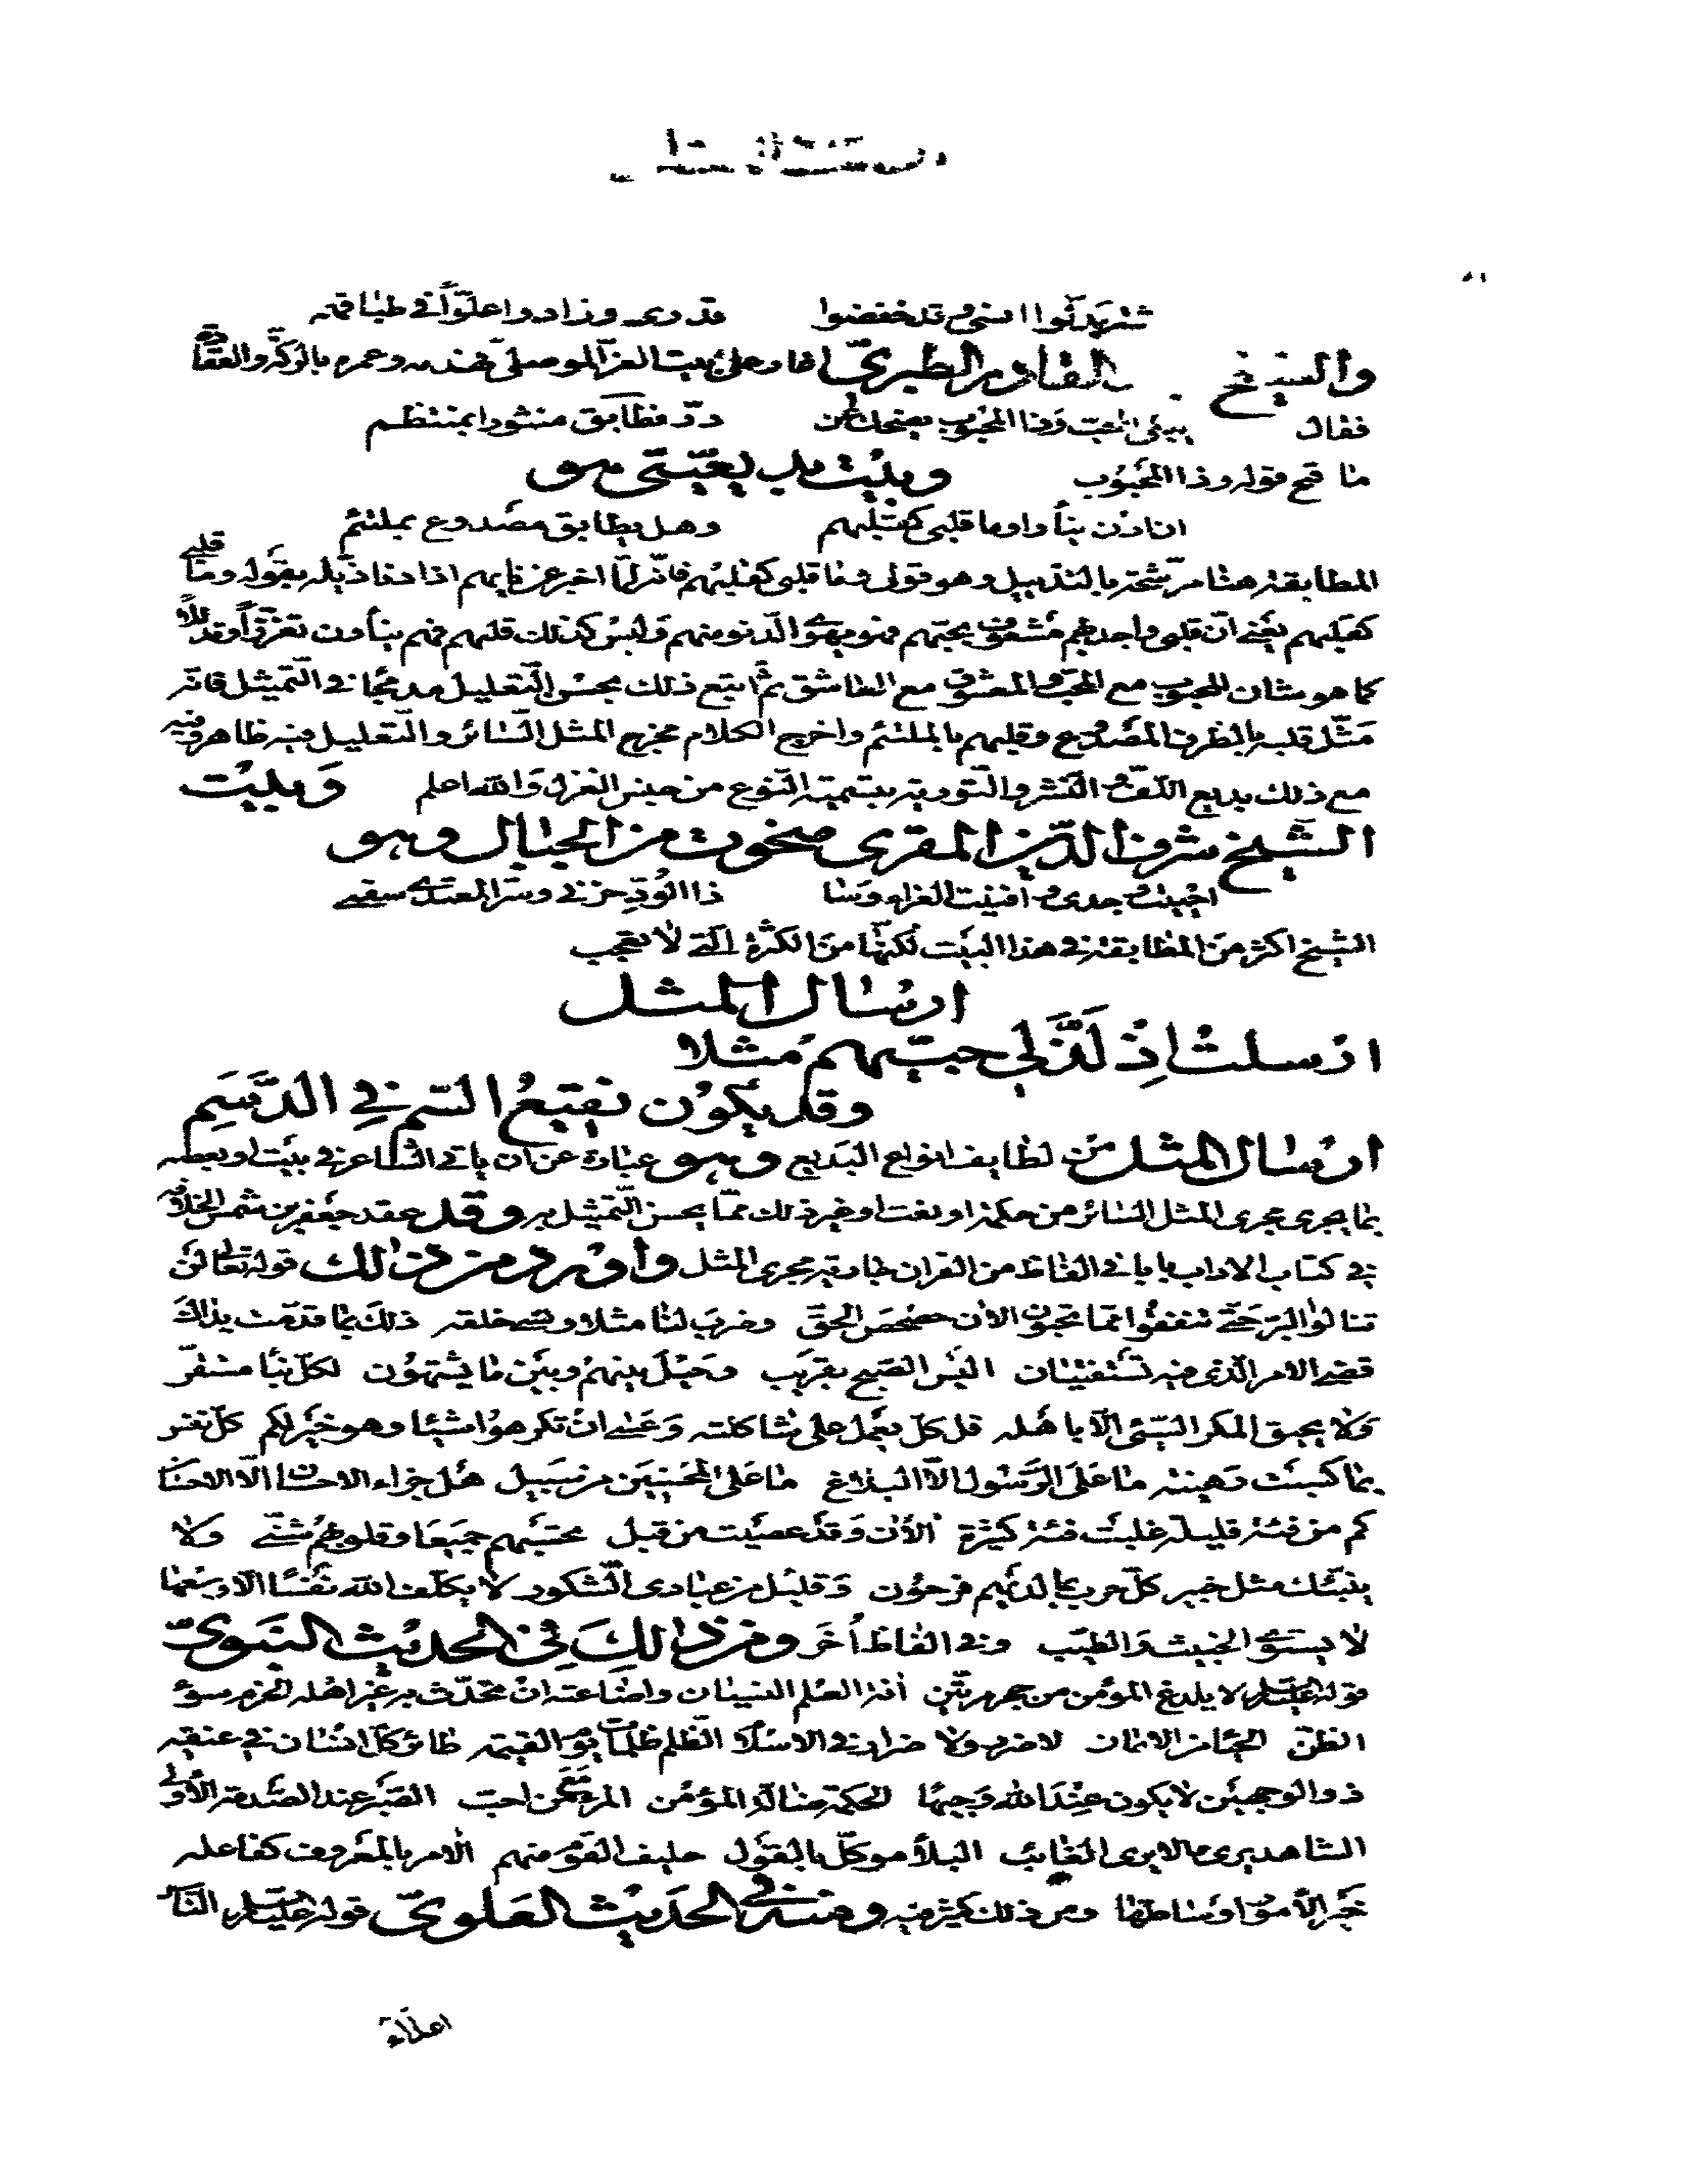 قدري وزادوا علوّاً في طباقهم
والشيخ القادر الطبريّ اغار على بيت العز الموصلي وعمره بالركّة والعقادة
فقال يبكي المحبّ وذا المحبوب يضحك عن درّ فطابق منثورا بمنتظم
ما قبح قوله وذا المحبوب وبيت بديعيّتي هو
ان ادن ينأوا وما قلبي كقلبهم وهل يطابق مصدوع بملتئم
المطابقة هنا مرشّحة بالتذييل وهو قولي وما قلبي كقلبهم فانّه لمّا اخبر عن نايهم اذا دنا ذيّله بقوله وما قلبي
كقلبهم يعني انّ قلبي واجد بهم مشغوف بحبّهم فهو يهوى الدّنو منهم وليس كذلك قلبهم فهم ينأون تعزّزاً وتدلّلاً
كما هو شان المحبوب مع المحبّ والمعشوق مع العاشق ثمّ اتبع ذلك بحسن التّعليل مدمجا في التّمثيل فانّه
مثّل قلبه بالظرف المصدوع وقلبهم بالملتئم واخرج الكلام مخرج المثل السّائر والتّعليل فيه ظاهر وفيه
مع ذلك بديع اللّفّ والنّشر والتّورية بتسمية النّوع من جنس الغزل والله اعلم وبيت
الشيخ شرف الدّين المقرى منحوت من الجبال وهو
احييت افنيت العزاء وسا ذا الودّ حزني وسرّ المعتدى سقمي
الشيخ اكثر من المطابقة في هذا البيت لكنّها من الكثرة الّتي لا تعجب
ارسال المثل
ارسلت اذ لذّ لي حبّيهم مثلا
وقد يكون نقيع السّم في الدّسم
ارسال المثل من لطايف انواع البديع وهو عبارة عن ان ياتي الشاعر في بيت او بعضه
بما يجرى مجرى المثل السائر من حكمة او نعت او غير ذلك ممّا يحسن التّمثيل به وقد عقد جعفر بن شمس الخلافة
في كتاب الاداب بابا في الفاظ من القران جارية مجرى المثل واورد من ذالك قوله تعالى لن
تنالوا البرّ حتّى تنفقوا ممّا تحبّون الان حصحص الحقّ وضرب لنا مثلا ونسي خلقه ذلك بما قدّمت يداك
قضي الامر الّذي فيه تستفتيان اليس الصّبح بقريب وحيل بينهم وبين ما يشتهون لكلّ نبأ مستقرّ
ولا يحيق المكر السّيّئ الّا باهله قل كلّ يعمل على شاكلته وعسى ان تكرهوا شيئا وهو خير لكم كلّ نفس
بما كسبت رهينة ما على الرّسول الّا البلاغ ما على المحسنين من سبيل هل جزاء الاحسان الّا الاحسان
كم من فئة قليلة غلبت فئة كثيرة الآن وقد عصيت من قبل تحسبهم جميعا وقلوبهم شتّى ولا
ينبّئك مثل خبير كلّ حزب بما لديهم فرحون وقليل من عبادى الشّكور لا يكلّف الله نفسا الّا وسعها
لا يستوي الخبيث والطيّب وفي الفاظ اخر ومن ذالك في الحديث النبويّ
قوله لا يلدغ المؤمن من جحر مرّتين آفة العلم النسيان واضاعته ان تحدّث به غير اهله الحزم سوء
الظنّ الحياء من الايمان لا ضرر ولا ضرار في الاسلام الظّلم ظلمات يوم القيمة طائر كلّ انسان في عنقه
ذو الوجهين لا يكون عند الله وجيها الحكمة ضالّة المؤمن المرء مع من احبّ الصّبر عند الصّدمة الاولى
الشاهد يرى ما لا يرى الغائب البلاء موكّل بالقول حليف القوم منهم الامر بالمعروف كفاعله
خير الامور اوساطها وفي ذلك كثير منه ومنه في الحديث العلويّ قوله النّاس
اعداء